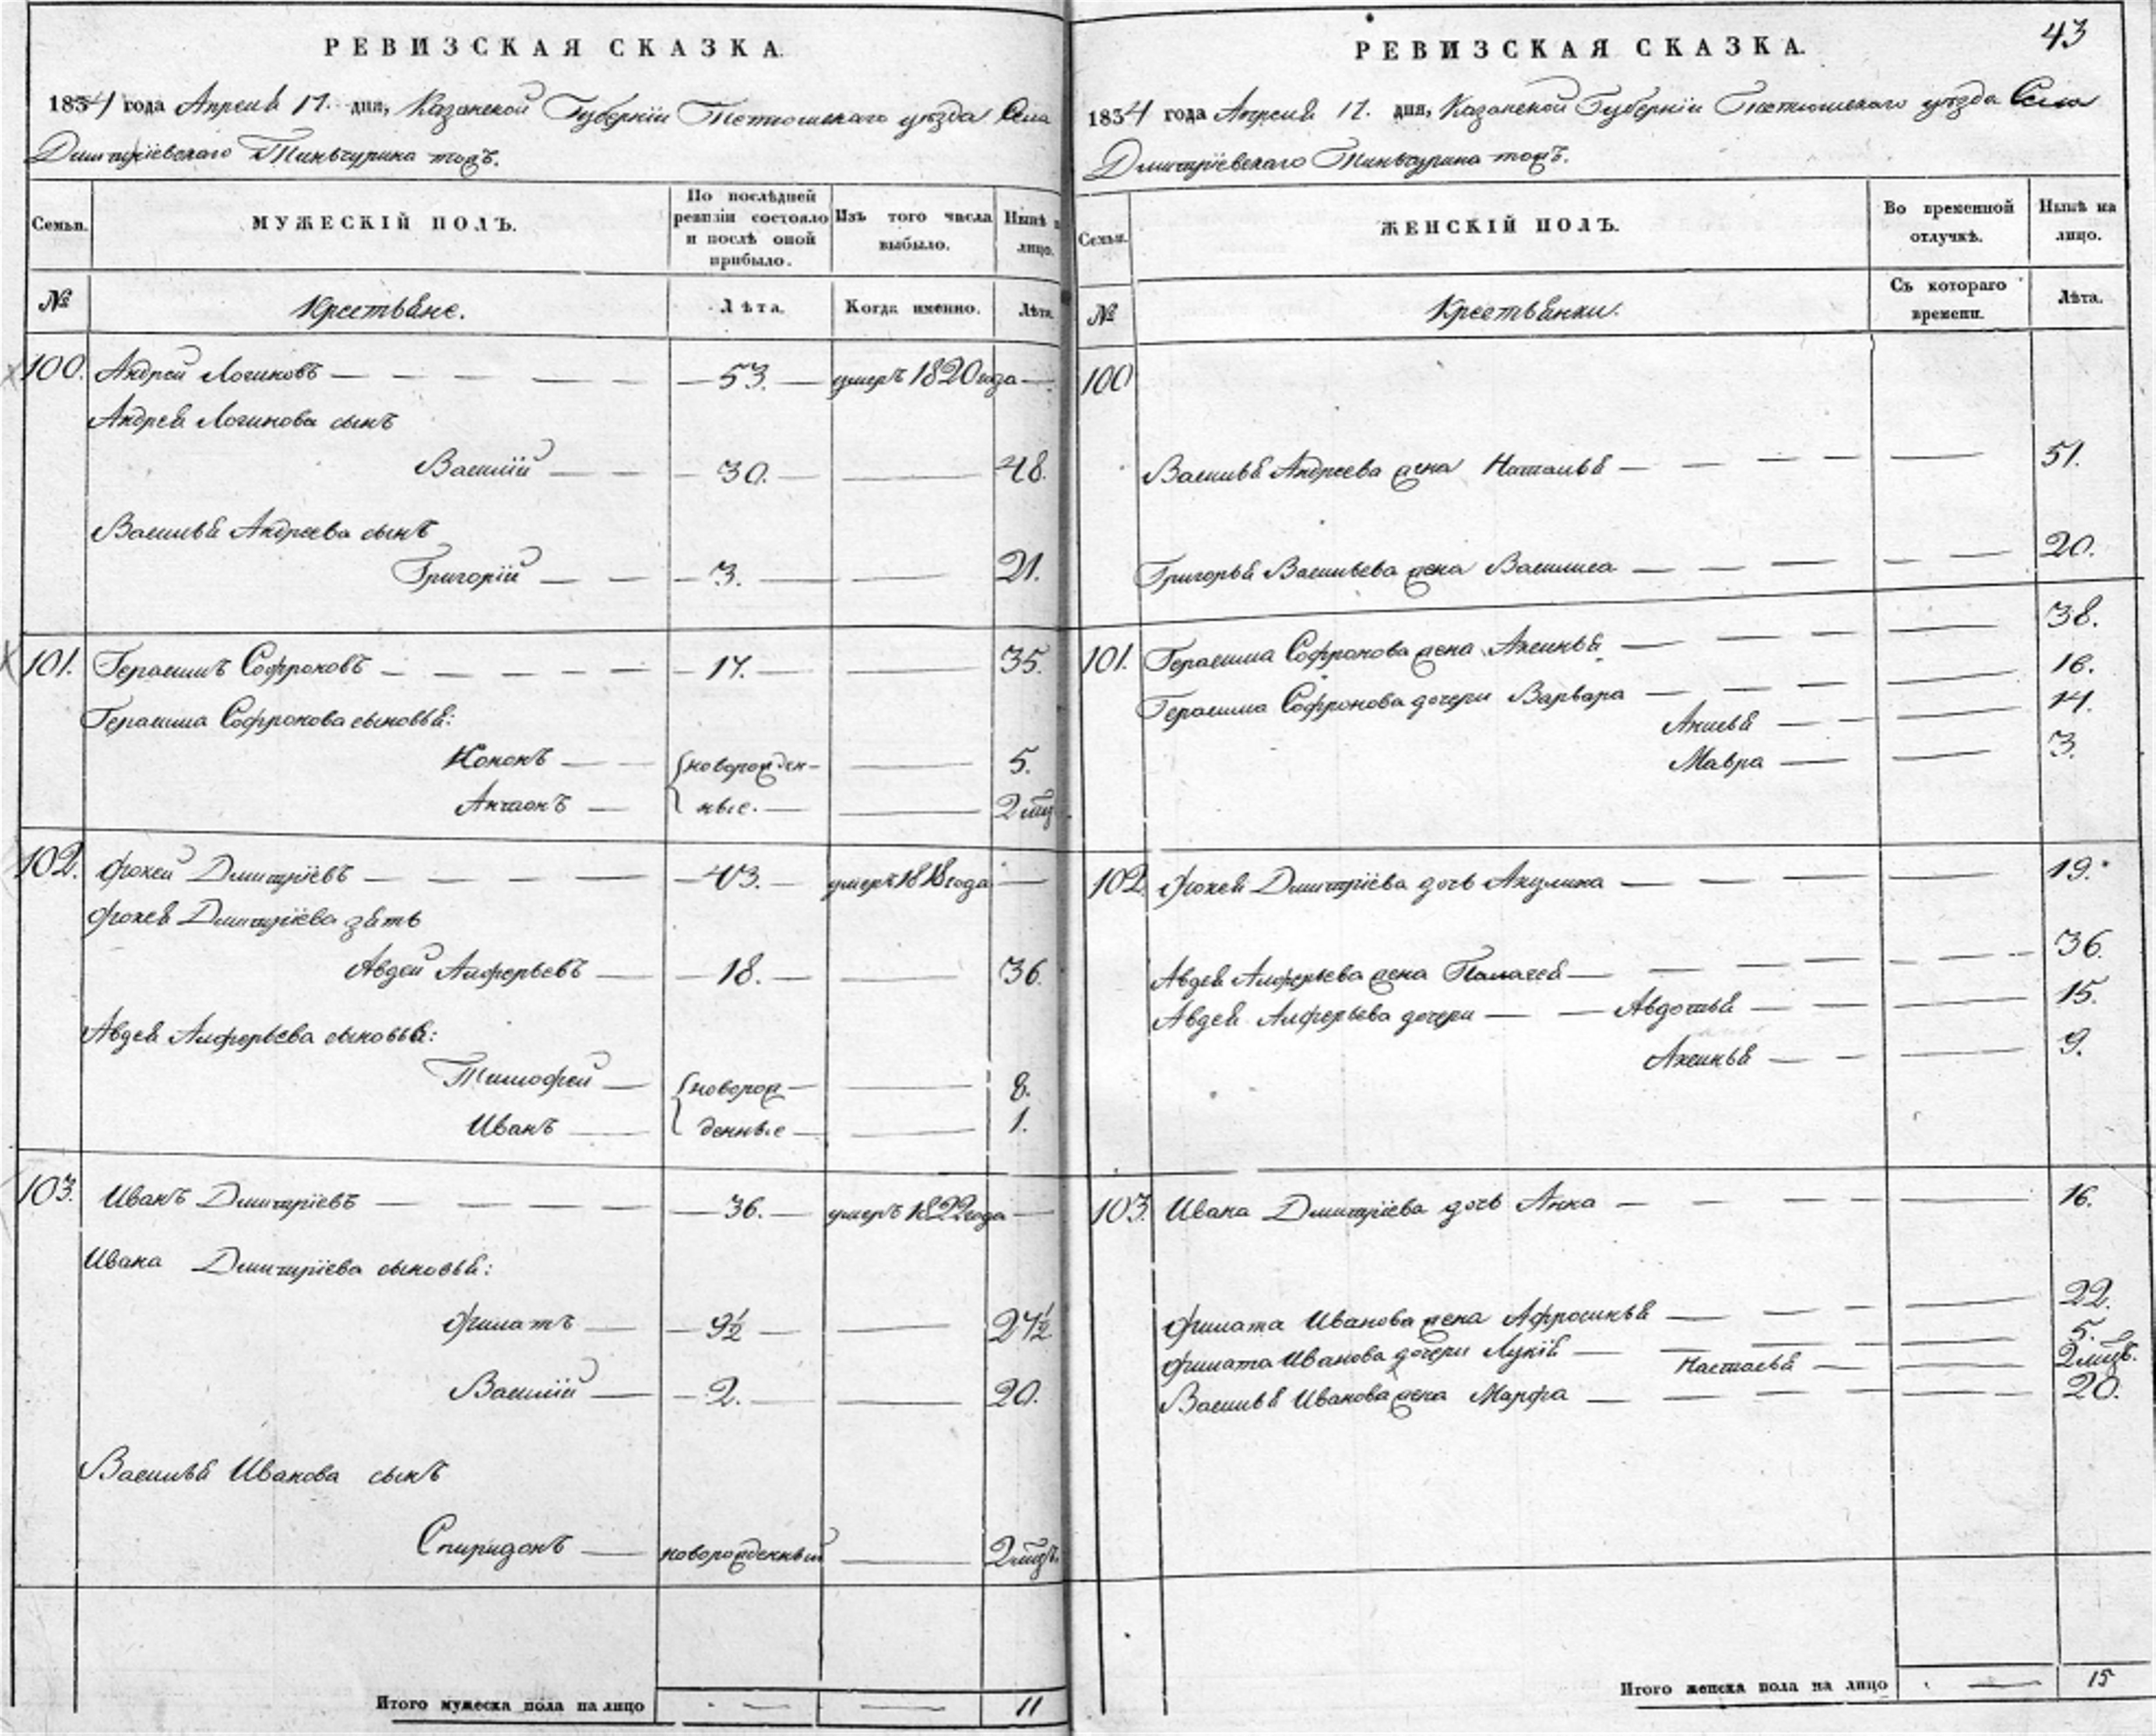 РЕВИЗСКАЯ СКАЗКА.
1834 года Апреля 17. дня, Казанской Губернiи Тетюшскаго уѣзда Села
Дмитрiевскаго Тиньчурина тожъ.
Семьи.
МУЖЕСКIЙ ПОЛЪ.
По послѣдней ревизiи состояло и послѣ оной прибыло.
Изъ того числа выбыло.
Нынѣ на лицо.
№
Крестьяне.
Лѣта.
Когда именно.
Лѣта.
100. Андрей Логиновъ — 53. — умеръ 1820 года —
Андрея Логинова сынъ
Василiй — 30. — 48.
Василья Андреева сынъ
Григорiй — 3. — 21.
101. Герасимъ Софроновъ — 17. — 35.
Герасима Софронова сыновья:
Кононъ — новорожден- — 5.
Антонъ — ные. — 2 мѣц
102. Фокей Дмитрiевъ — 43. — умеръ 1818 года —
Фокея Дмитрiева зять
Авдей Алферьевъ — 18. — 36.
Авдея Алферьева сыновья:
Тимофей — новорож — 8.
Иванъ — денные — 1.
103. Иванъ Дмитрiевъ — 36. — умеръ 1822 года —
Ивана Дмитрiева сыновья:
Филатъ — 9½ — 27½
Василiй — 2. — 20.
Василья Иванова сынъ
Спиридонъ — новорожденный — 2 мѣцъ.
Итого мужеска пола на лицо — — 11
43
РЕВИЗСКАЯ СКАЗКА.
1834 года Апреля 17. дня, Казанской Губернiи Тетюшскаго уѣзда Села
Дмитрiевскаго Тиньчурина тожъ.
Семьи.
ЖЕНСКIЙ ПОЛЪ.
Во временной отлучкѣ.
Нынѣ на лицо.
№
Крестьянки.
Съ котораго времени.
Лѣта.
100
Василья Андреева жена Наталья — 51.
Григорья Васильева жена Василиса — 20.
101. Герасима Софронова жена Аксинья — 38.
Герасима Софронова дочери Варвара — 16.
Анисья — 14.
Мавра — 3.
102. Фокея Дмитрiева дочь Акулина — 19.
Авдея Алферьева жена Палагея — 36.
Авдея Алферьева дочери — Авдотья — 15.
Аксинья — 9.
103. Ивана Дмитрiева дочь Анна — 16.
Филата Иванова жена Афросинья — 22.
Филата Иванова дочери Лукiя — 5.
Настасья — 2 мѣцъ.
Василья Иванова жена Марфа — 20.
Итого женска пола на лицо — 15